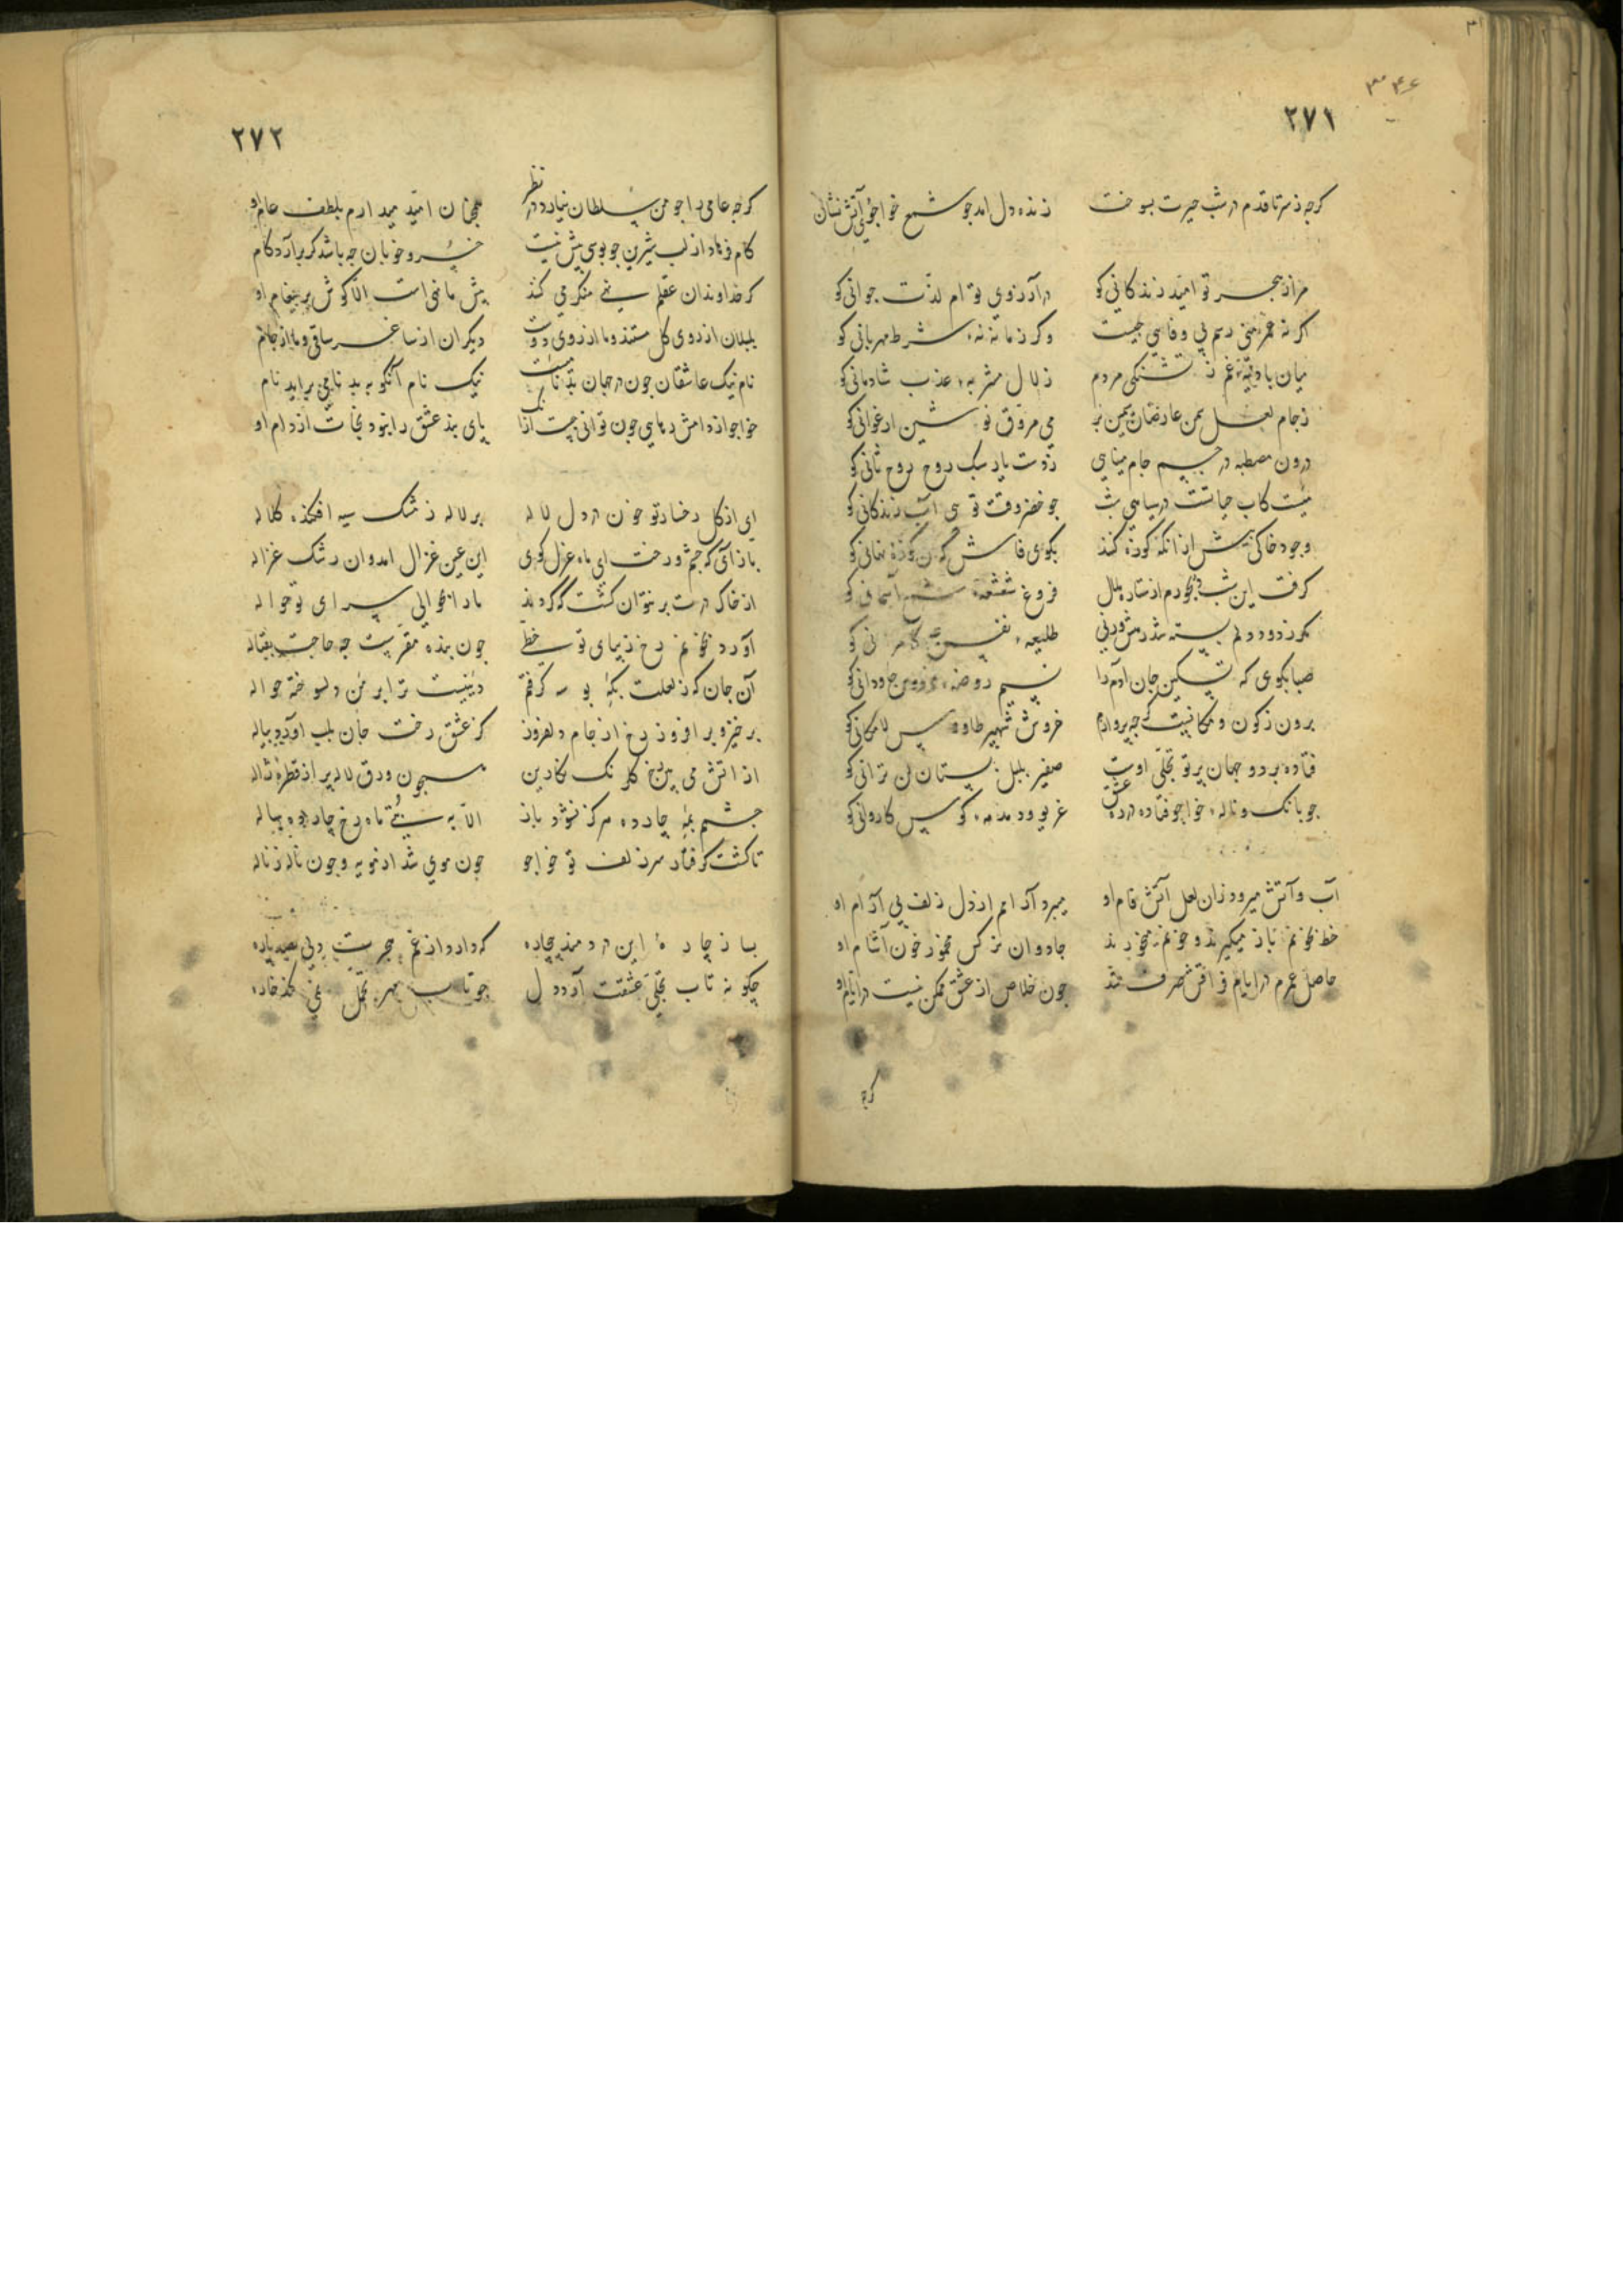 ٣٤۶
٢٧١
کرچه ز سر تا قدم در شب حیرت بسوخت زنده دل آمد چو شمع خواجوی آتش نشان
مرا ز هجر تو امید زندکانی کو در آرزوی توام لذت جوانی کو
اکر نه عمر منی رسم بی وفایی چیست وکر زمانه نه شرط مهربانی کو
میان بادیهٔ غم ز تشنکی مردم زلال مشربهٔ عذب شادمانی کو
ز جام لعل سمن عارضان سیمین بر می مروق نوشین ارغوانی کو
درون مصطبه در جسم جام مینایی ز دست یار سبک روح روح ثانی کو
کاب حیاتست در سیاهی شب چو خضر وقت تویی آب زندکانی کو
وجود خاکی پیش از آنکه کوزه کنند بکوی فاش که آن کوزهٔ نهانی کو
کرفت این شب دیجورم از ستاره ملال فروغ شعشعهٔ شمع آسمانی کو
مکر ز دود دلم بسته شد طلیعهٔ نفس کو
صبا بکوی که تسکین جان آدم را نسیم روضهٔ فردوس جاودانی کو
برون ز کون و مکانیست کرچه پروازم خروش شهپر طاوس لامکانی کو
فتاده بر دو جهان پرتو تجلی اوست صفیر بلبل بستان لن ترانی کو
چو بانک و ناله خواجو فتاده در ره عشق غریو و دمدمهٔ کوس کاروانی کو
آب و آتش میرود زان لعل آتش فام او میبرد آرامم از دل زلف بی آرام او
خط بخونم باز میکیرند و خونم میخورند جادوان نرکس مخمور خون آشام او
حاصل عمرم در ایام فراقش صرف شد چون خلاص از عشق ممکن نیست در ایام او
کرچه
٢٧٢
کرچه عامی را چو من سلطان نیارد در نظر همچنان امید میدارم بلطف عام او
کام فرهاد از لب شیرین چو بوسی بیش نیست خسرو خوبان چه باشد کر برآرد کام
کر خداوندان عقلم نهی منکر می کنند پیش ما نهی است الا کوش بر پیغام او
بلبلان از روی کل مستند و ما از روی دوست دیکران از ساغر ساقی و ما از جام
نام نیک عاشقان چون در جهان بدنامیست نیک نام آنکو به بدنامی برآید نام
خواجو از دامش رهایی چون توانی جست ازانک پای بند عشق را نبود نجات از دام او
ای از کل رخسار تو خون در دل لاله بر لاله ز مشک سیه افکنده کلاله
باز آی که چشم و رخت ای ماه غزل کوی این عین غزال آمد و آن رشک غزاله
از خاک درت برنتوان کشت که کردند ما را بحوالی سرای تو حواله
آورد بخونم رخ زیبای تو خطی چون بنده مقر است چه حاجت بقباله
آن جان که ز لعلت بکه بوسه کرفتم دینیست ترا بر من دلسوخته حواله
برخیز و برافروز رخ از جام دلفروز کز عشق رخت جان بلب آورد پیاله
از آتش می بین رخ کلرنک نکارین همچون ورق لاله پر از قطرهٔ ژاله
چشم بمه چارده هرکز نشود باز الا به بتی ماه رخ چارده ساله
تا کشت کرفتار سر زلف تو خواجو چون موی شد از مویه و چون ناله ز ناله
بساز چارهٔ این دردمند بیچاره که دارد از غم هجرت دلی بصد پاره
چکونه تاب تجلی عشقت آرد دل چو تاب مهر تحمل نمی کند خاره